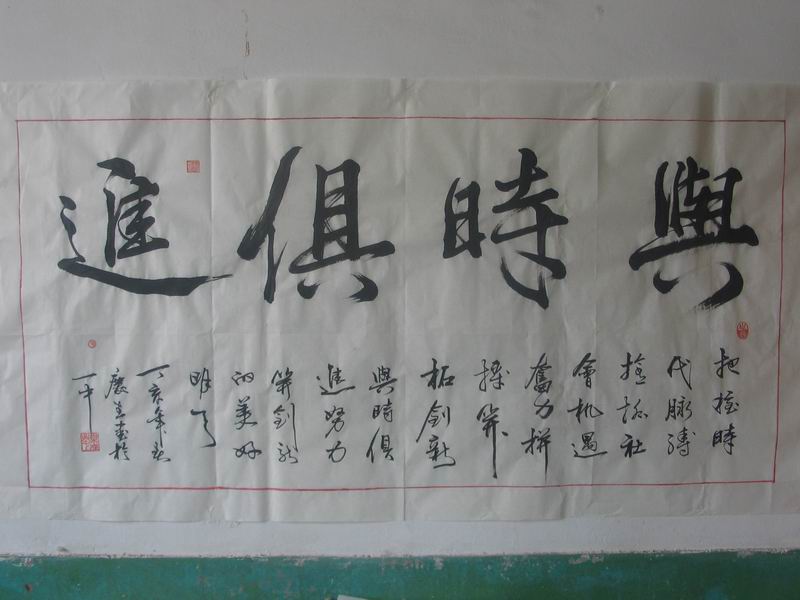 與時俱進
把握時
代脉搏
搶抓社
會机遇
奮力拼
搏開
拓創新
與時俱
進努力
開創新
的美好
明天
丁亥年春
書於
一中